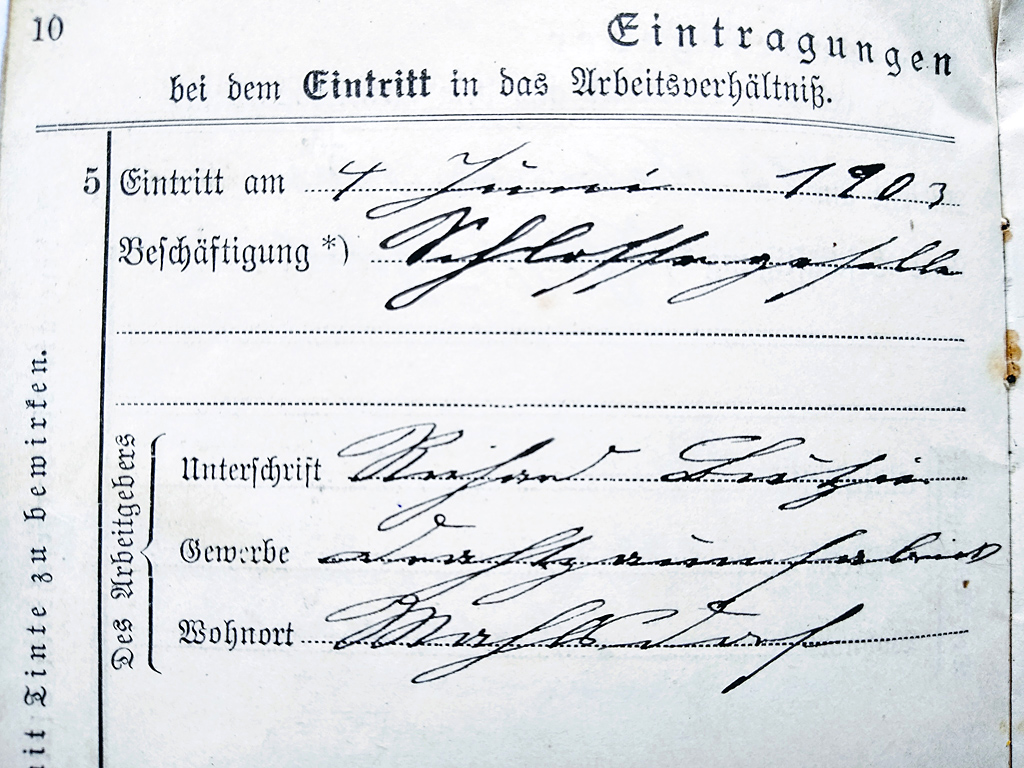 10
Eintragungen
bei dem Eintritt in das Arbeitsverhältniß.
5 Eintritt am 4 Juni 1903
Beschäftigung *) Schlossergeselle
Des Arbeitgebers
Unterschrift Richard
Gewerbe Drahtzaunfabrik
Wohnort Mahlsdorf
mit Tinte zu bewirken.